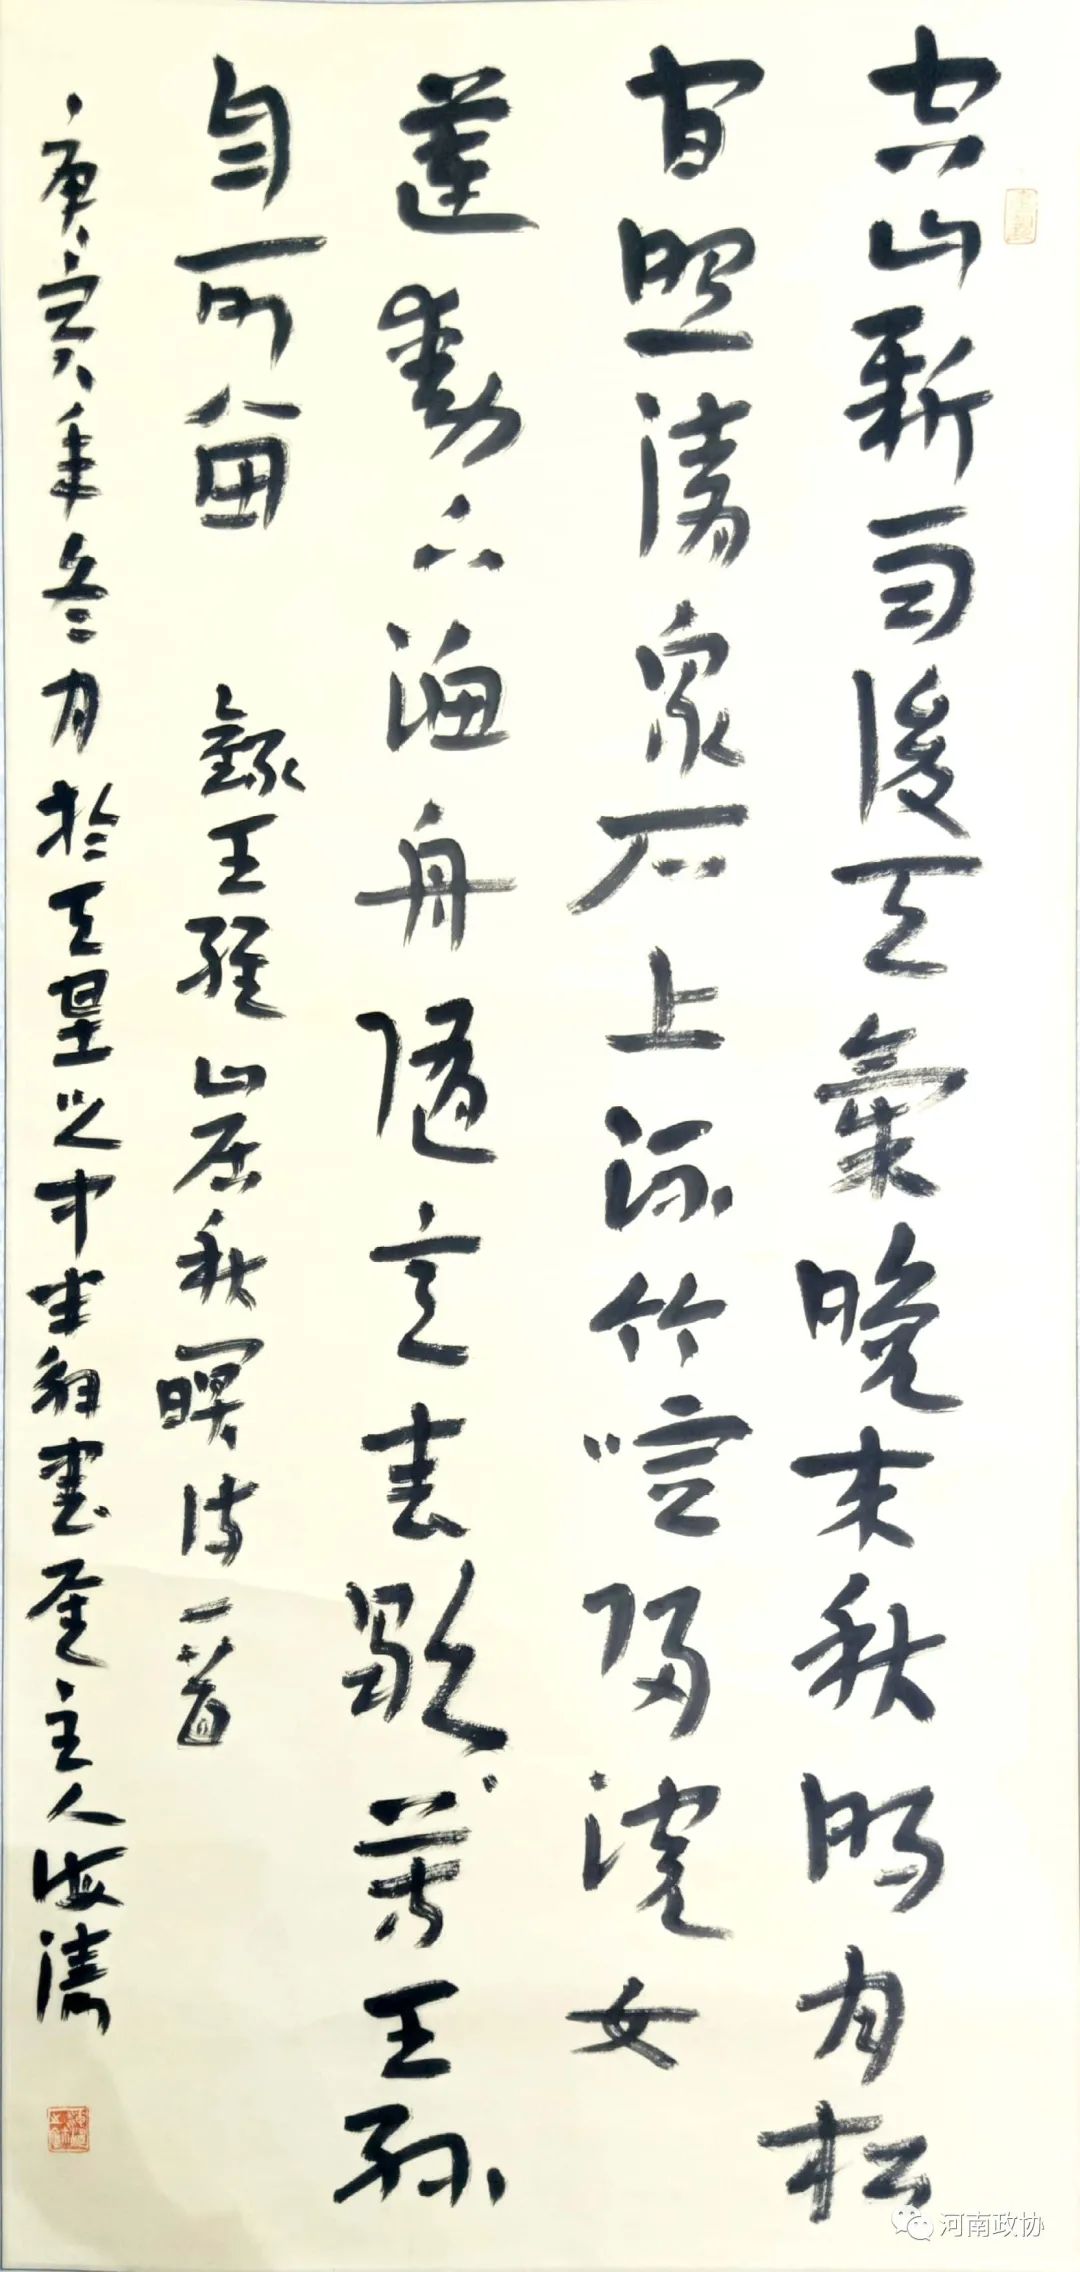 空山新雨後天氣晚来秋明月松
間照清泉石上流竹喧歸浣女
蓮動下漁舟隨意春歇芳王孫
自可留 錄王維山居秋暝诗一首
庚寅年冬月於天 之中 書 主人海濤
河南政协